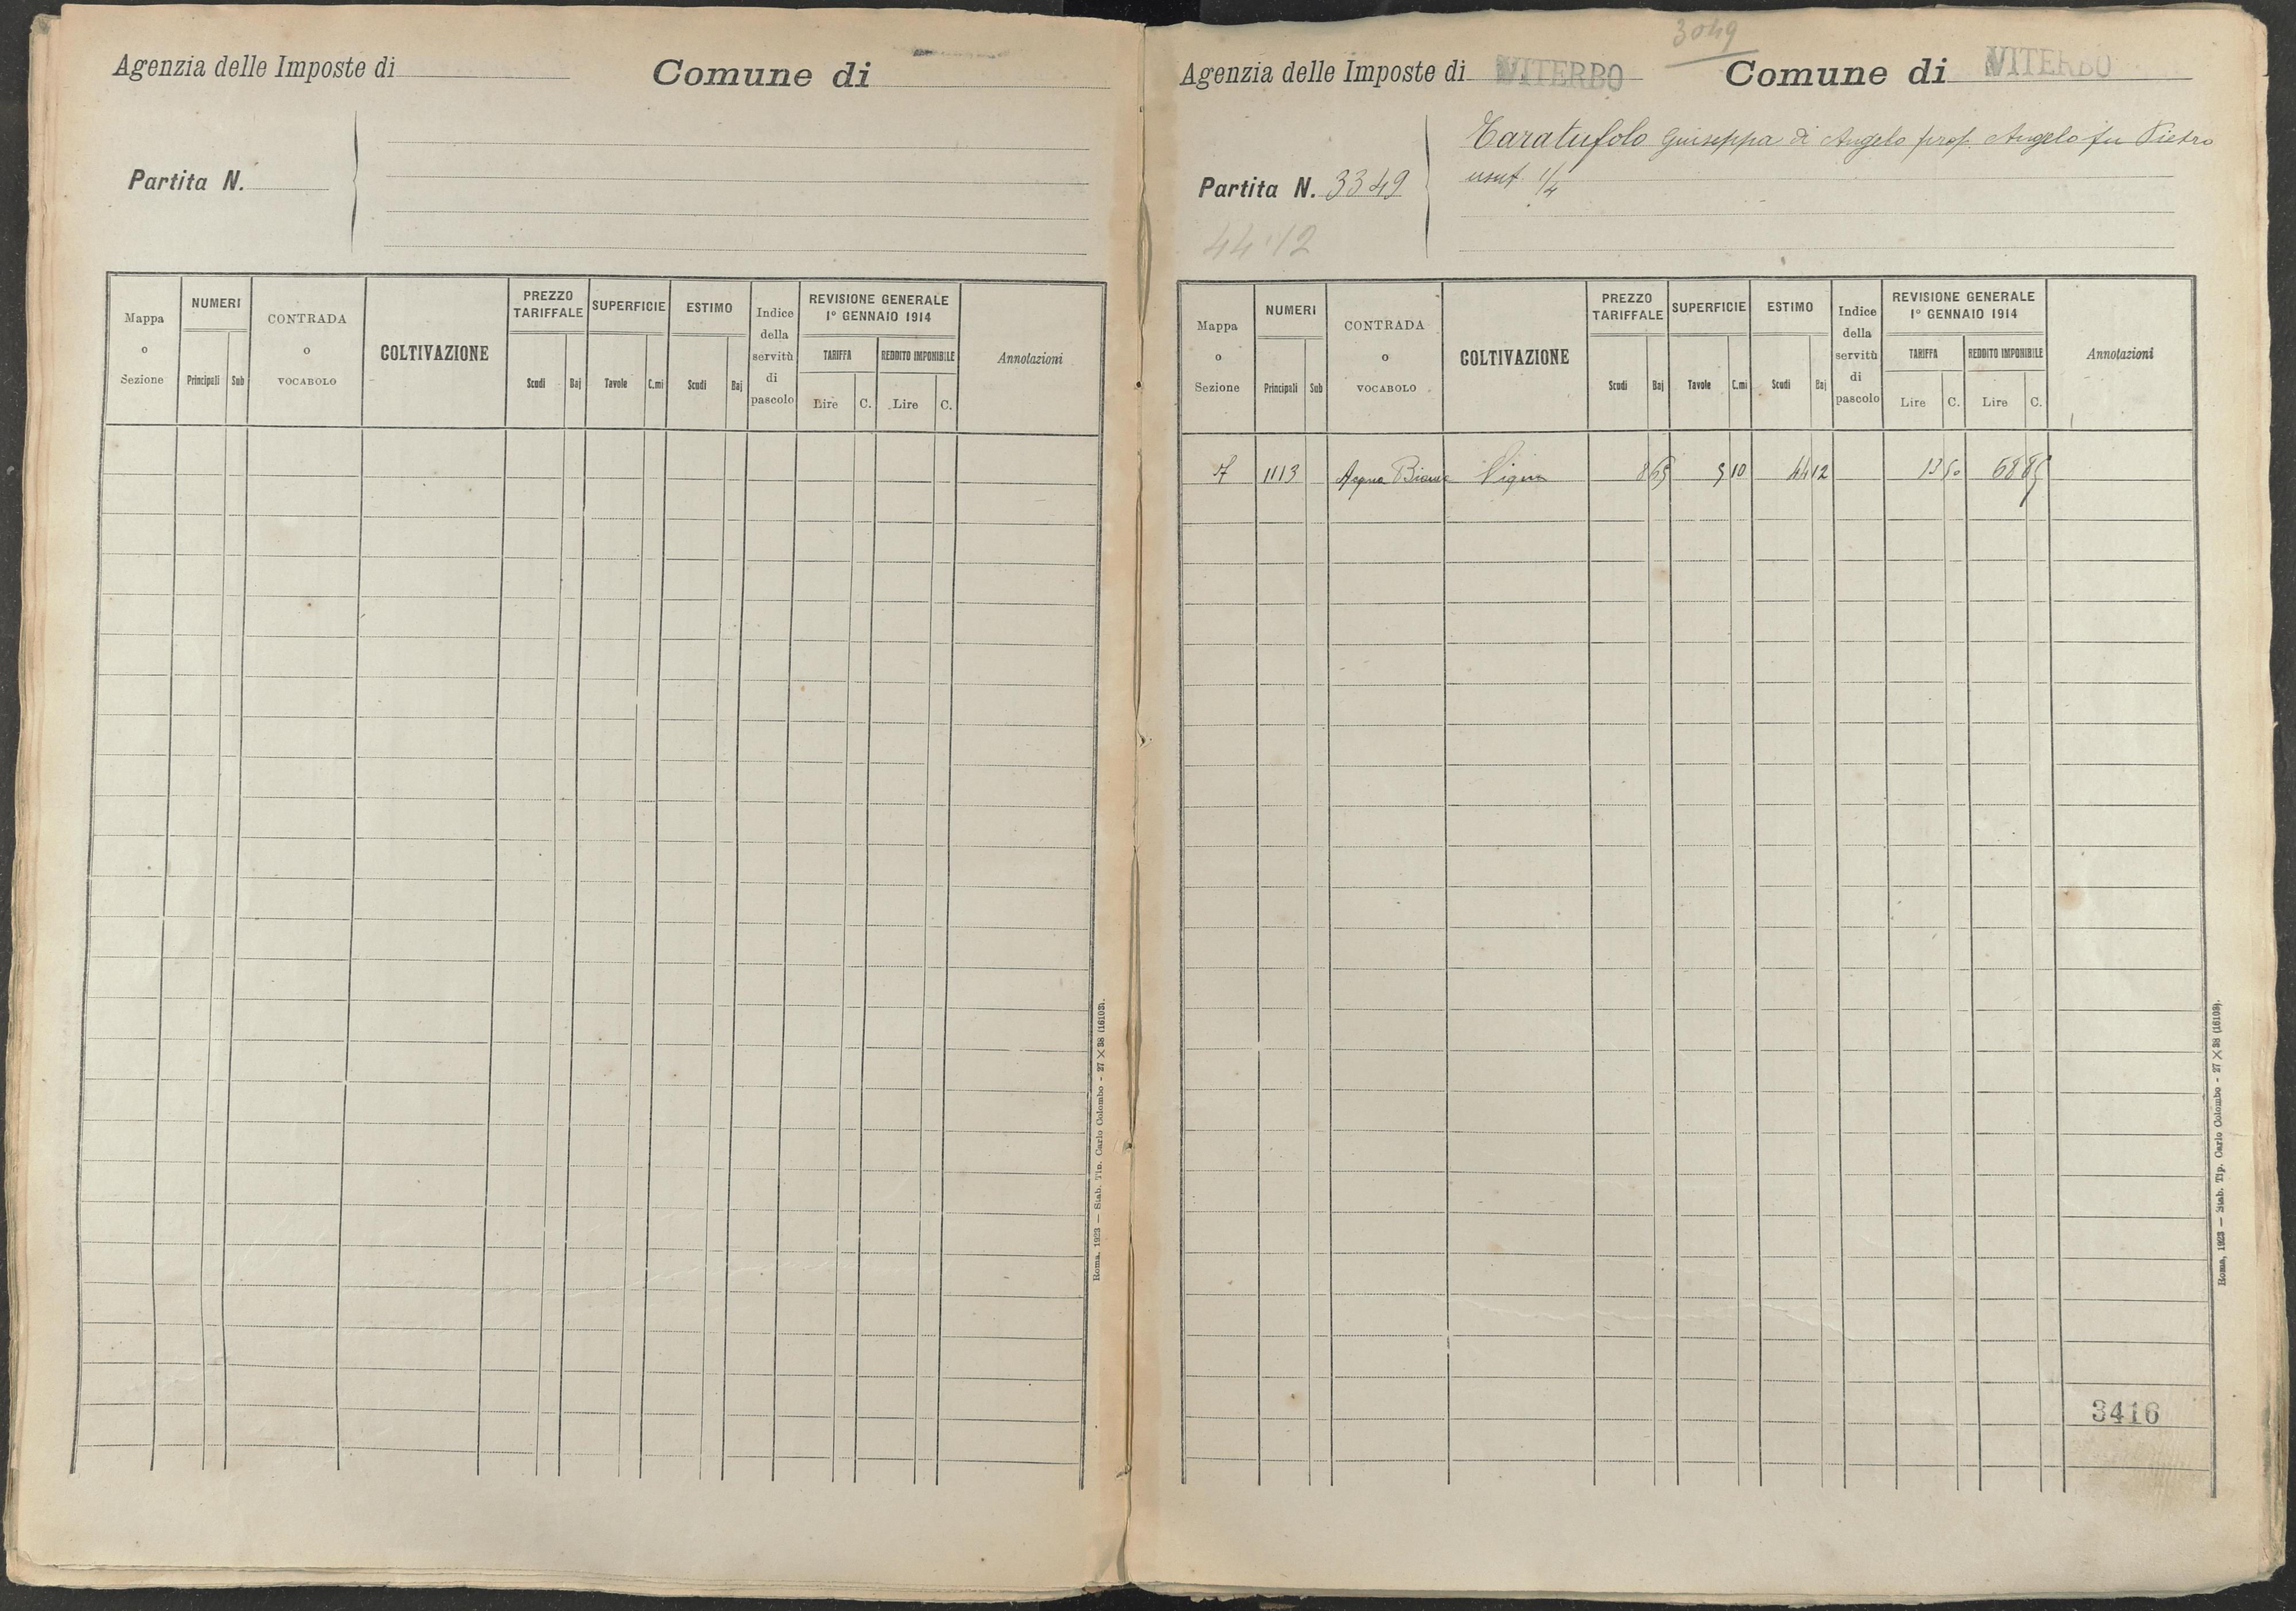 Agenzia delle Imposte di
Comune di
Partita N.
Mappa o Sezione
NUMERI
Principali Sub
CONTRADA o VOCABOLO
COLTIVAZIONE
PREZZO TARIFFALE
Scudi Baj
SUPERFICIE
Tavole C.mi
ESTIMO
Scudi Baj
Indice della servitù di pascolo
REVISIONE GENERALE
1° GENNAIO 1914
TARIFFA
Lire C.
REDDITO IMPONIBILE
Lire C.
Annotazioni
Roma, 1923 — Stab. Tip. Carlo Colombo - 27 × 38 (16103).
3049
Agenzia delle Imposte di VITERBO
Comune di VITERBO
Taratufolo Giuseppa di Angelo prop. Angelo fu Pietro
usuf. 1/4
Partita N. 3349
44.12
Mappa o Sezione
NUMERI
Principali Sub
CONTRADA o VOCABOLO
COLTIVAZIONE
PREZZO TARIFFALE
Scudi Baj
SUPERFICIE
Tavole C.mi
ESTIMO
Scudi Baj
Indice della servitù di pascolo
REVISIONE GENERALE
1° GENNAIO 1914
TARIFFA
Lire C.
REDDITO IMPONIBILE
Lire C.
Annotazioni
1113 Acqua Bianca Vigna 8 65 5 10 44 12 13 50 68 85
3416
Roma, 1923 — Stab. Tip. Carlo Colombo - 27 × 38 (16103).